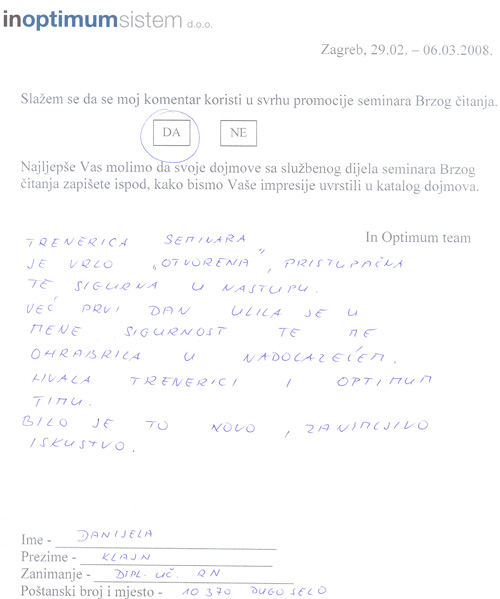 inoptimumsistem d.o.o.
Zagreb, 29.02. – 06.03.2008.
Slažem se da se moj komentar koristi u svrhu promocije seminara Brzog čitanja.
DA NE
Najljepše Vas molimo da svoje dojmove sa službenog dijela seminara Brzog
čitanja zapišete ispod, kako bismo Vaše impresije uvrstili u katalog dojmova.
In Optimum team
TRENERICA SEMINARA
JE VRLO „OTVORENA“, PRISTUPAČNA
TE SIGURNA U NASTUPU.
VEĆ PRVI DAN ULILA JE U
MENE SIGURNOST TE ME
OHRABRILA U NADOLAZEĆEM.
HVALA TRENERICI I OPTIMUM
TIMU.
BILO JE TO NOVO, ZANIMLJIVO
ISKUSTVO.
Ime - DANIJELA
Prezime - KLAJN
Zanimanje - DIPL. UČ. RN
Poštanski broj i mjesto - 10 370 DUGO SELO